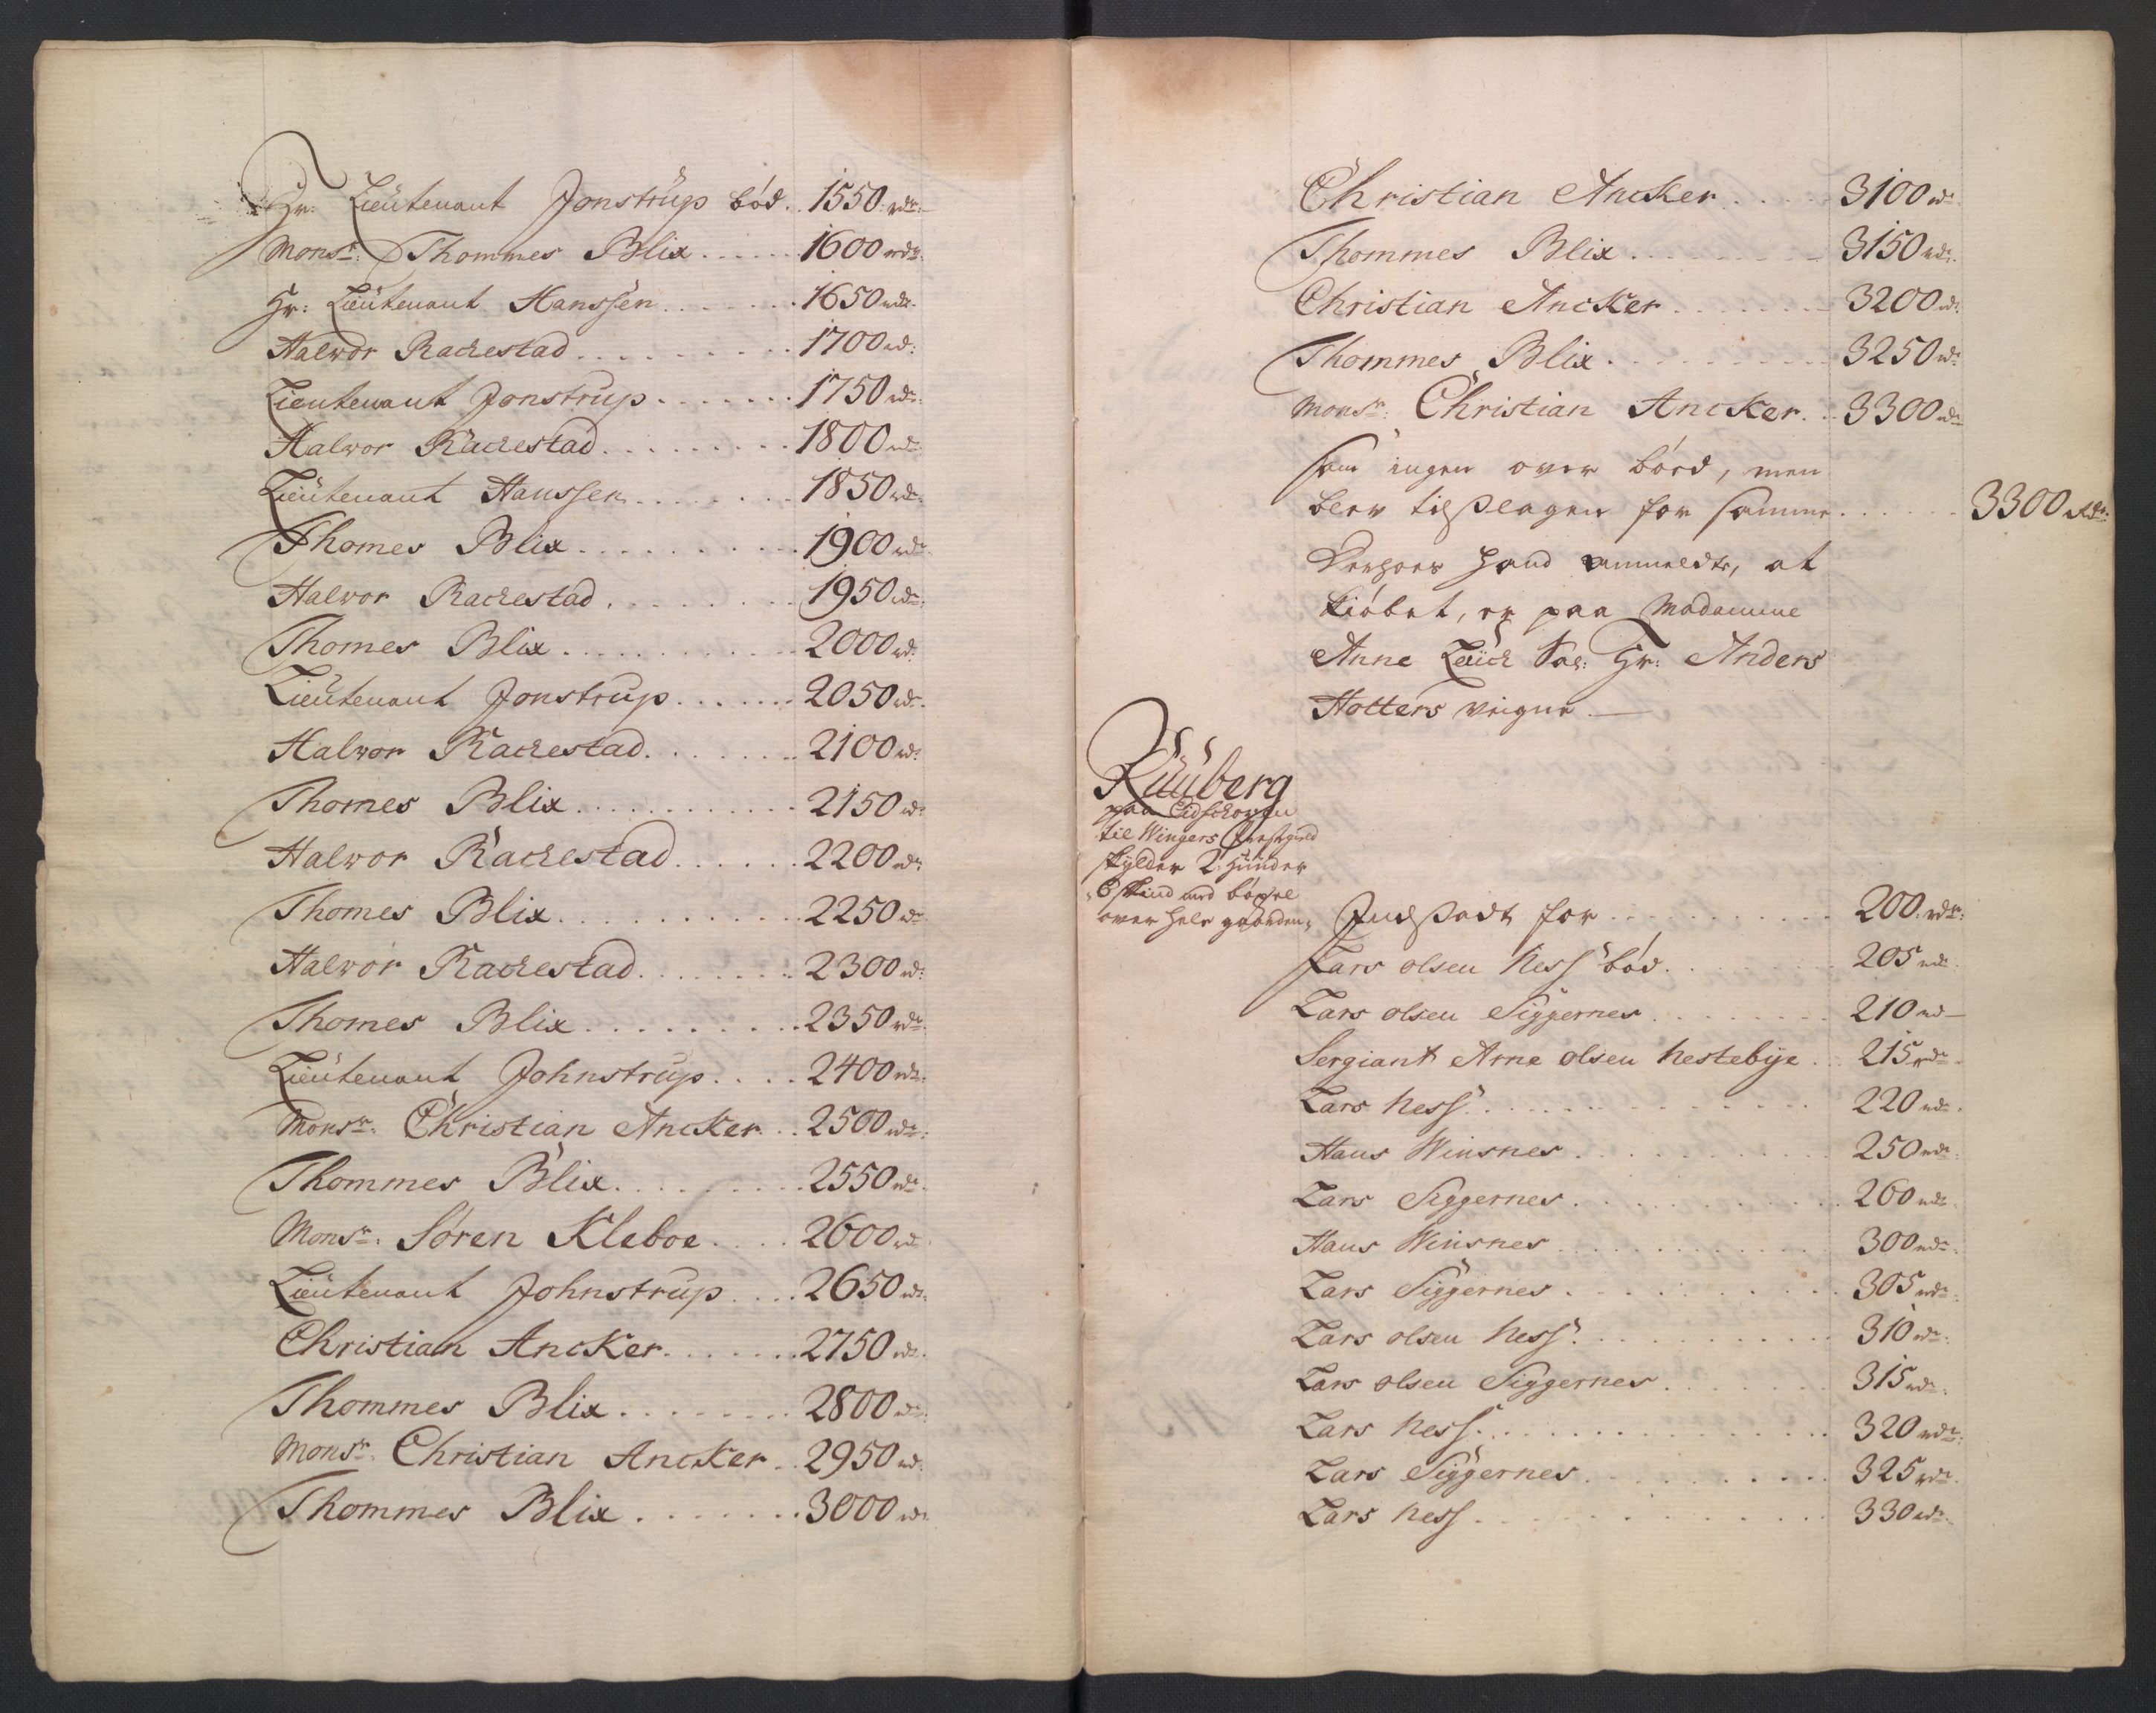 Hr: Lieutenant Jonstrup bód. 1550 rdr.
Monsr: Thommes Blix . . . . . 1600 rdr.
Hr: Lieutenant Hanssen . . . . . . 1650 rdr.
Halvor Rackestad . . . . . . . . . 1700 rd:
Lieutenant Jonstrup . . . . . . . 1750 rdr.
Halvor Rackestad . . . . . . . . . 1800 rdr
Lieutenant Hanssen . . . . . . . 1850 rdr.
Thomes Blix . . . . . . . . . . 1900 rdr.
Halvor Rackestad . . . . . . . . 1950 rdr.
Thomes Blix . . . . . . . . . . . 2000 rd.
Lieutenant Jonstrup . . . . . . 2050 rdr.
Halvor Rackestad . . . . . . . 2100 rdr
Thomes Blix . . . . . . . . . . . 2150 rdr
Halvor Rackestad . . . . . . 2200 rdr
Thomes Blix . . . . . . . . . . . 2250 rdr
Halvor Rackestad . . . . . . . . 2300 rd:
Thomes Blix . . . . . . . . . . 2350 rdr.
Lieutenant Johnstrup . . . . 2400 rdr.
Monsr: Christian Ancker . . . 2500 rdr.
Thommes Blix . . . . . . . . . 2550 rdr.
Monsr: Sóren Kleboe . . . . 2600 rdr
Lieutenant Johnstrup . . . . 2650 rdr.
Christian Ancker . . . . . . . 2750 rdr.
Thommes Blix . . . . . . . . 2800 rdr.
Monsr: Christian Ancker . . 2950 rd.
Thommes Blix . . . . . . . . 3000 rdr.
Christian Ancker . . . . . 3100 rdr
Thommes Blix . . . . . . . . . 3150 rdr.
Christian Ancker . . . . . . . 3200 rdr.
Thommes Blix . . . . . . . . . . 3250 rdr
Monsr: Christian Ancker . . 3300 rdr
som ingen over bóed, men
blev tilslagen for samme . . . . . . 3300 Rdr.
Derhoes hand anmeldte, at
kióbet, er paa Madamme
Anne Leüch Sal: Hr: Anders
Hotters veigne. —
Rüüberg
paa Eidschougen
til Wingers Præstegield
skylder 2 Hunder
6 skind med bóxel
over hele gaarden,
Indsadt for . . . . . . . . . . . 200 rdr:
Lars olsen Ness bód . . . . . . . 205 rdr.
Lars olsen Siggernes . . . . . . . . 210 rd —
Sergiant Arne olsen Nestebÿe . . 215 rdr.
Lars Ness . . . . . . . . . . . . . . 220 rdr.
Hans Winsnes . . . . . . . . . . . 250 rdr.
Lars Siggernes . . . . . . . . . . . 260 rdr.
Hans Winsnes . . . . . . . . . . . 300 rdr.
Lars Siggernes . . . . . . . . . . . 305 rdr.
Lars olsen Ness . . . . . . . . . . 310 rdr.
Lars olsen Siggernes . . . . . . . 315 rdr.
Lars Ness . . . . . . . . . . . . . . 320 rdr.
Lars Siggernes . . . . . . . . . . 325 rdr.
Lars Ness . . . . . . . . . . . . . 330 rdr.